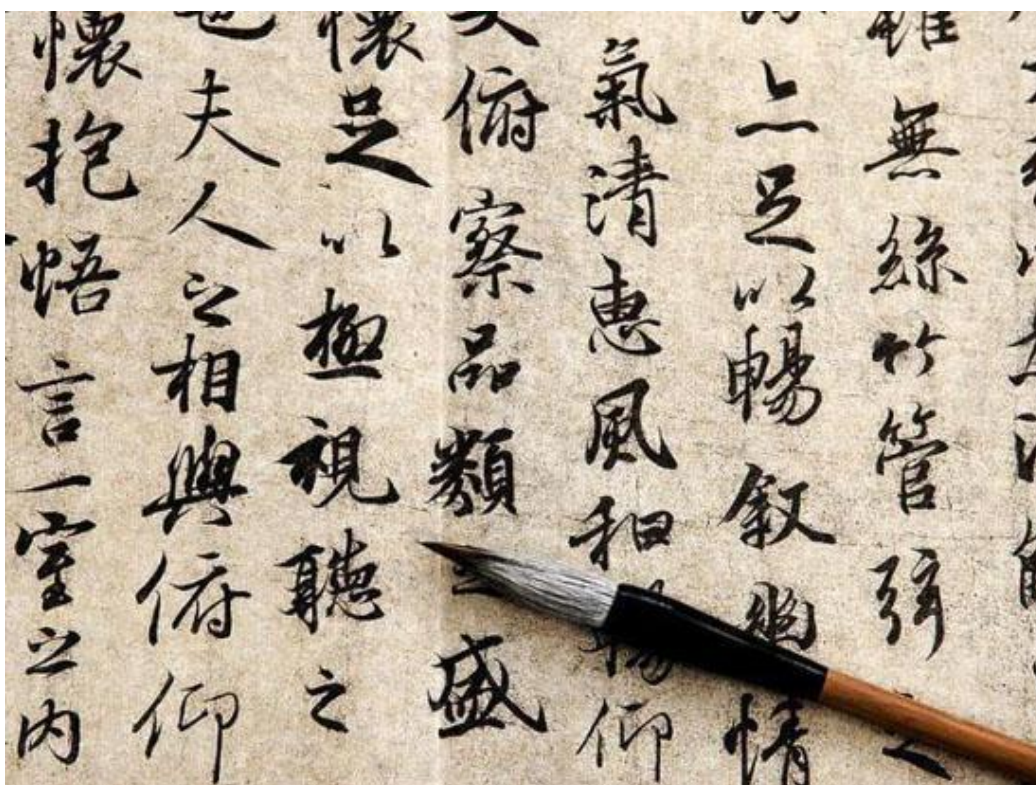 雖無絲竹管弦之
亦足以暢叙幽情
氣清惠風和暢仰
俯察品類之盛
懷足以極視聽之
也夫人之相與俯仰
懷抱悟言一室之内